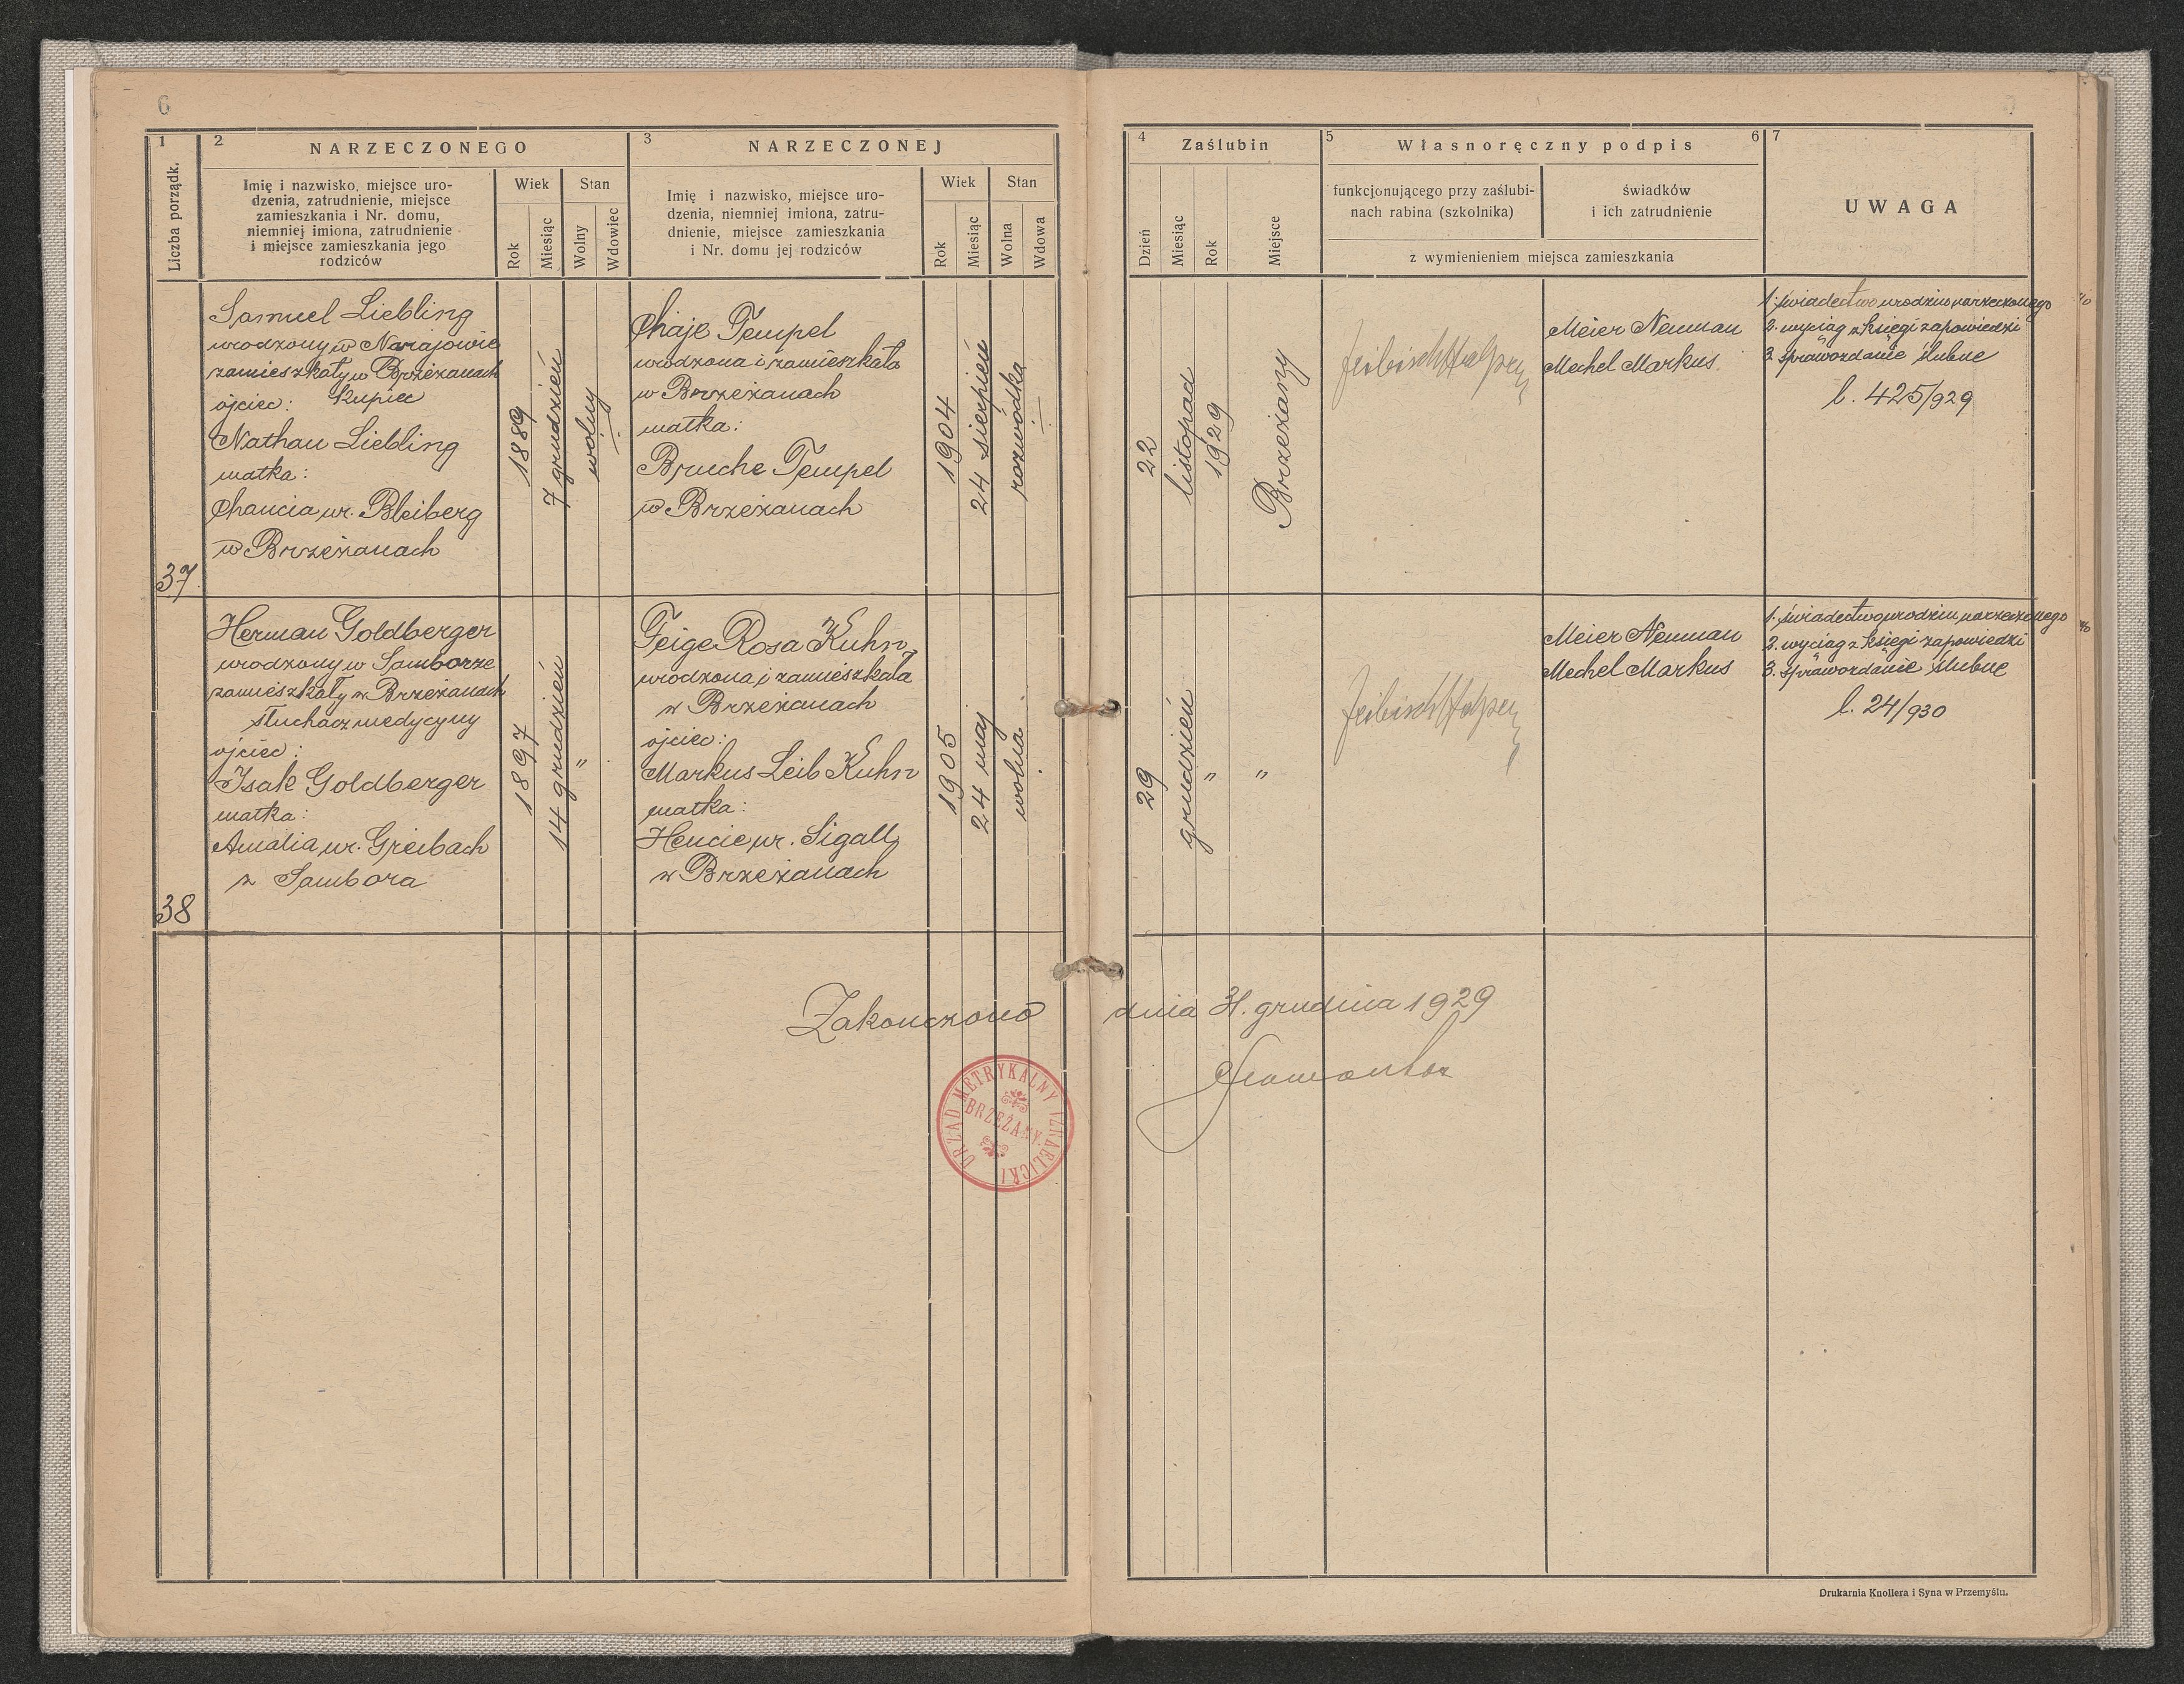 6
1
Liczba porządk.
2
NARZECZONEGO
Imię i nazwisko, miejsce uro-
dzenia, zatrudnienie, miejsce
zamieszkania i Nr. domu,
niemniej imiona, zatrudnienie
i miejsce zamieszkania jego
rodziców
Wiek
Stan
Rok
Miesiąc
Wolny
Wdowiec
3
NARZECZONEJ
Imię i nazwisko, miejsce uro-
dzenia, niemniej imiona, zatru-
dnienie, miejsce zamieszkania
i Nr. domu jej rodziców
Wiek
Stan
Rok
Miesiąc
Wolna
Wdowa
4
Zaślubin
Dzień
Miesiąc
Rok
Miejsce
5
Własnoręczny podpis
6
funkcjonującego przy zaślubi-
nach rabina (szkolnika)
świadków
i ich zatrudnienie
z wymienieniem miejsca zamieszkania
7
UWAGA
37.
Samuel Liebling
urodzony w Narajowie
zamieszkały w Brzeżanach
ojciec: Kupiec
Nathan Liebling
matka:
Chancia ur. Bleiberg
w Brzeżanach
1889
7 grudzień
wolny
Chaje Tempel
urodzona i zamieszkała
w Brzeżanach
matka:
Bruche Tempel
w Brzeżanach
1904
24 sierpień
rozwódka
22
listopad
1929
Brzeżany
Feibisch Halpern
Meier Neuman
Mechel Markus.
1. świadectwo urodzin narzeczonego
2. wyciąg z księgi zapowiedzi
3. sprawozdanie ślubne
l. 425/929
38
Herman Goldberger
urodzony w Samborze
zamieszkały w Brzeżanach
słuchacz medycyny
ojciec:
Isak Goldberger
matka:
Amalia ur. Greibach
z Sambora
1897
14 grudzień
"
Feige Rosa Kuhn,
urodzona i zamieszkała
w Brzeżanach
ojciec:
Markus Leib Kuhn
matka:
Hencie ur. Sigall
w Brzeżanach
1905
24 maj
wolna
29
grudzień
"
"
Feibisch Halpern
Meier Neuman
Mechel Markus
1. świadectwo urodzin narzeczonego
2. wyciąg z księgi zapowiedzi
3. sprawozdanie ślubne
l. 24/930
Zakończono dnia 31. grudnia 1929
URZĄD METRYKALNY IZRAELICKI
BRZEŻANY.
Drukarnia Knollera i Syna w Przemyślu.